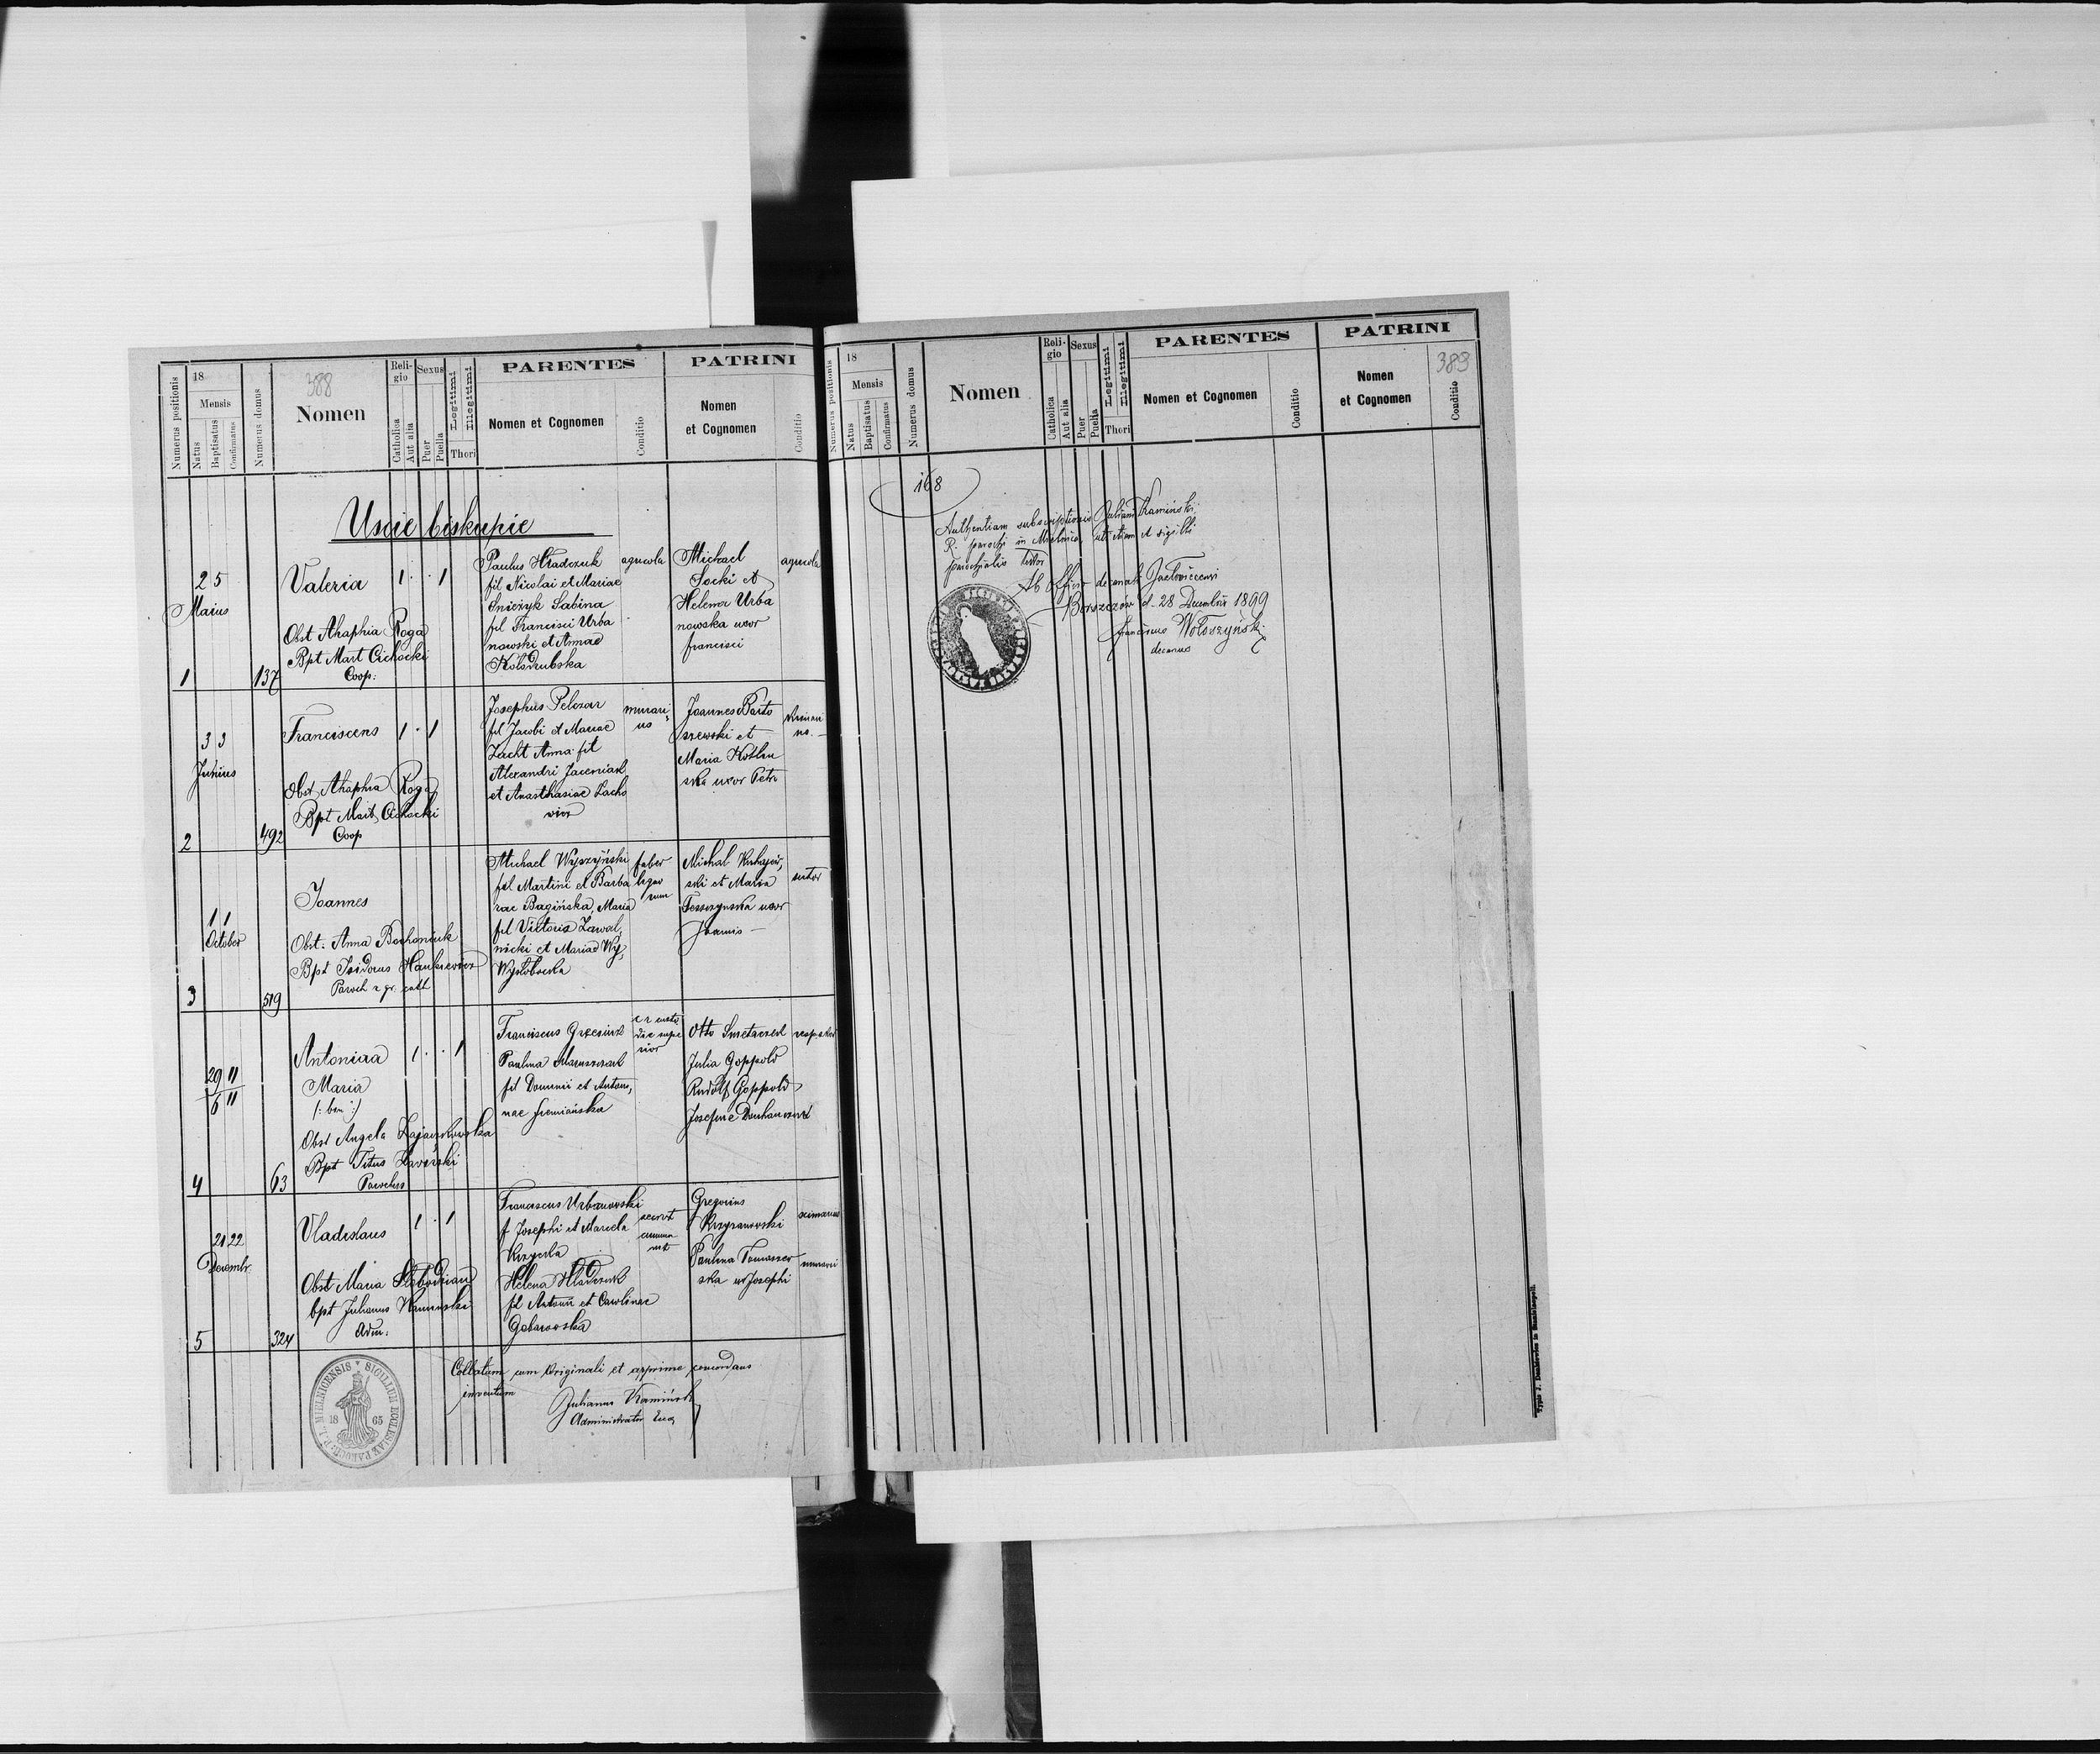 388
Numerus positionis
18
Mensis
Natus
Baptisatus
Confirmatus
Numerus domus
Nomen
Religio
Catholica
Aut alia
Sexus
Puer
Puella
Legitimi
Illegitimi
Thori
PARENTES
Nomen et Cognomen
Conditio
PATRINI
Nomen
et Cognomen
Conditio
Uscie biskupie
1
2 5
Maius
137
Valeria
1 . . 1
Obst Ahaphia Roga
Bpt Mart Cichocki
Coop:
Paulus Hładczuk
fil Nicolai et Mariae
Sniezyk Sabina
fil Francisci Urba
nowski et Annae
agricola
Michael
Socki et
Helena Urba
nowska uxor
francisci
agricola
2
3 3
Junius
492
Franciscus
1 . 1
Obst Ahaphia Roga
Bpt Mart Cichocki
Coop
Josephus Pelczar
fil Jacobi et Mariae
Zacht Anna fil
Alexandri Jaceniak
et Anasthasiae Lacho
wicz
murari
us
Joannes Barto
szewski et
Maria
ska uxor Petri
3
1 1
October
519
Joannes
Obst. Anna Bochoniuk
Bpt Isidorus Hankiewicz
Paroch r. gr. cath
Michael Wyszyński
fil Martini et Barba
rae Bagińska, Maria
fil Victoris Zawal
nicki et Mariae Wy
Wysłobocka
faber
ligno
rum
Michal
ski et Maria
uxor
Joannis
sutor
4
29 11
6 11
63
Antonina
Maria
1 . . 1
Obst Angela Zajaczkowska
Bpt Titus Zaviński
Parochus
Franciscus Grzesiuk
Paulina
fil Dominici et Antoni
nae
Otto Smetaczek
Julia Goppold
Rudolf Goppold
Josefine
5
21 22
Decembr.
324
Vladislaus
1 . 1
Obst Maria Słobodzian
bpt Julianus Kaminski
Adm:
Franciscus Urbanowski
f Josephi et Marcela
Krzycka
Helena Hładczuk
fil Antonii et Carolinae
Gabarowska
Gregorius
Krzyzanowski
Paulina Tomaszew
ska ux Josephi
Collatum cum Originali et apprime concordans
inventum
Julianus Kamiński
Administrator Eccl
SIGILLUM ECCLESIAE PAROCH. R. L. MIELNICENSIS
18 65
389
Numerus positionis
18
Mensis
Natus
Baptisatus
Confirmatus
Numerus domus
Nomen
Religio
Catholica
Aut alia
Sexus
Puer
Puella
Legitimi
Illegitimi
Thori
PARENTES
Nomen et Cognomen
Conditio
PATRINI
Nomen
et Cognomen
Conditio
168
Authentiam subscriptionis Juliani Kaminski
R. parochi in Mielnica uti etiam et sigilli
parochialis testor
Ab Officio decanali
Borszczów d. 28 Decembris 1899
Franciscus Wołoszyński
decanus
Typis J. Dankiewicz in Stanislaopoli.